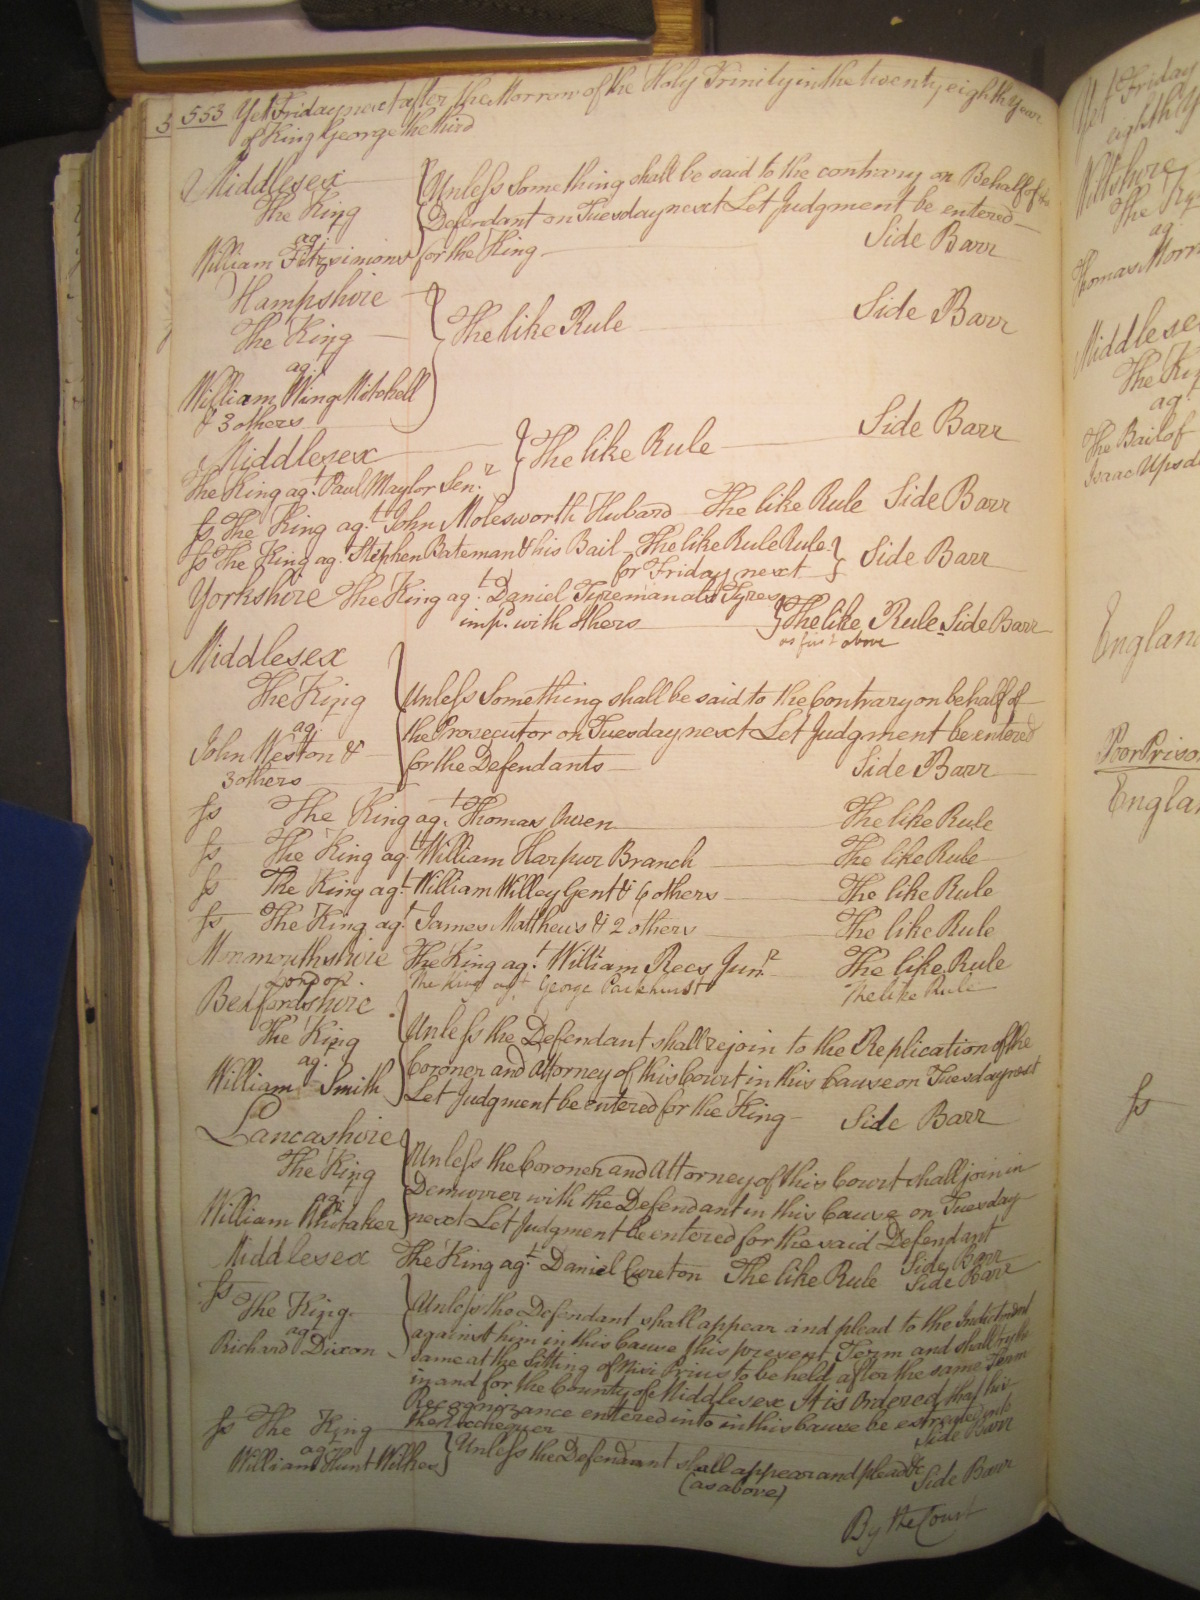 3 553 Yet Friday next after the Morrow of the Holy Trinity in the twenty eighth Year
of King George the third
Middlesex
The King
agt.
William Fitzsimons
Unless Something shall be said to the contrary on Behalf of the
Defendant on Tuesday next Let Judgment be entered
for the King Side Barr
Hampshire
The King
agt.
William Wing Mitchell
& 3 others
The like Rule Side Barr
Middlesex
The King agt. Paul Maylor Senr.
The like Rule Side Barr
Ss The King agt. John Molesworth Hubard The like Rule Side Barr
Ss The King ag. Stephen Bateman & his Bail The like Rule Rule
for Friday next Side Barr
Yorkshire The King agt. Daniel Tyreman als Tyres
imp. with others The like Rule Side Barr
as first above
Middlesex
The King
ag.
John Weston &
3 others
Unless Something shall be said to the Contrary on behalf of
the Prosecutor on Tuesday next Let Judgment be entered
for the Defendants Side Barr
Ss The King agt. Thomas Owen The like Rule
Ss The King agt. William Harpur Branch The like Rule
Ss The King agt. William Willey Gent & 6 others The like Rule
Ss The King agt. James Matthews & 2 others The like Rule
Monmouthshire The King agt. William Rees Junr. The like Rule
London The King agt George Parkhurst The like Rule
Bedfordshire
The King
ag.
William Smith
Unless the Defendant shall rejoin to the Replication of the
Coroner and Attorney of this Court in this Cause on Tuesday next
Let Judgment be entered for the King Side Barr
Lancashire
The King
ag.
William Whitaker
Unless the Coroner and Attorney of this Court shall join in
Demurrer with the Defendant in this Cause on Tuesday
next Let Judgment be entered for the said Defendant
Side Barr
Middlesex The King agt. Daniel Cureton The like Rule Side Barr
Ss
The King
ag.
Richard Dixon
Unless the Defendant shall appear and plead to the Indictment
against him in this Cause this present Term and shall try the
same at the Sitting of Nisi Prius to be held after the same Term
in and for the County of Middlesex It is Ordered that his
Recognizance entered into in this Cause be estreated into
the Exchequer Side Barr
Ss The King
agt
William Hunt Wilkes
Unless the Defendant shall appear and plead &c
(as above) Side Barr
By the Court
Yet Friday
eighth Y
Wiltshire
The King
ag.
Thomas Morr
Middlesex
The King
ag.
The Bail of
Isaac Upsd
England
Poor Priso
Englan
Ss